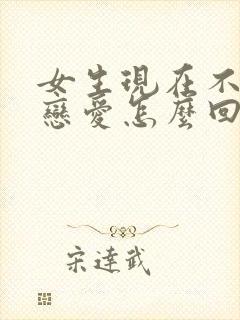 女生現在不
戀愛怎麼回
宋達武